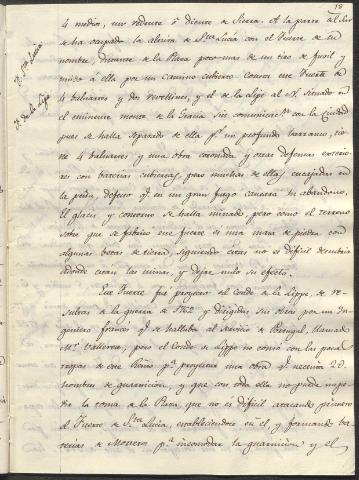 18
4 medios, un rediente ó diente de Sierra. A la parte del Sur
se ha ocupado la altura de Sta Lucia con el Fuerte de su
Ft. Sta Lucia
nombre, distante de la Plaza poco mas de un tiro de fusil y
unido á ella por un camino cubierto consta este Fuerte de
Ft. de la Lipe
4 baluartes y dos revellines, y el de la Lipe al N. situado en
el eminente monte de la Gracia sin comunicacn con la Ciudad
pues se halla separado de ella pr un profundo barranco, tie-
ne 4 baluartes y una obra coronada y otras defensas exterio-
res con baterias cubiertas, pero muchas de ellas encajadas en
la peña, defecto qe en un gran fuego causará su abandono.
El glacis y contorno se halla minado, pero como el terreno
sobre que se fabricó este fuerte es una masa de piedra con
algunas betas de tierra siguiendo estas no es dificil descubrir
adonde estan las minas, y dejar nulo su efecto.
Este Fuerte fué proyecto del Conde de la Lippe de re-
sultas de la guerra de 1762 y dirigidas sus obras por un In-
geniero frances qe se hallaba al servicio de Portugal, llamado
Mr. Valleree, pero el Conde de Lippe no contó con las pocas
tropas de este Reino pa proyectar una obra qe necesita 2@
hombres de guarnicion, y que con toda ella no puede impe-
dir la toma de la Plaza que no es dificil atacando primero
el Fuerte de Sta Lucia, estableciendose en el, y formando ba-
terias de Mortero pa incomodar la guarnicion y el